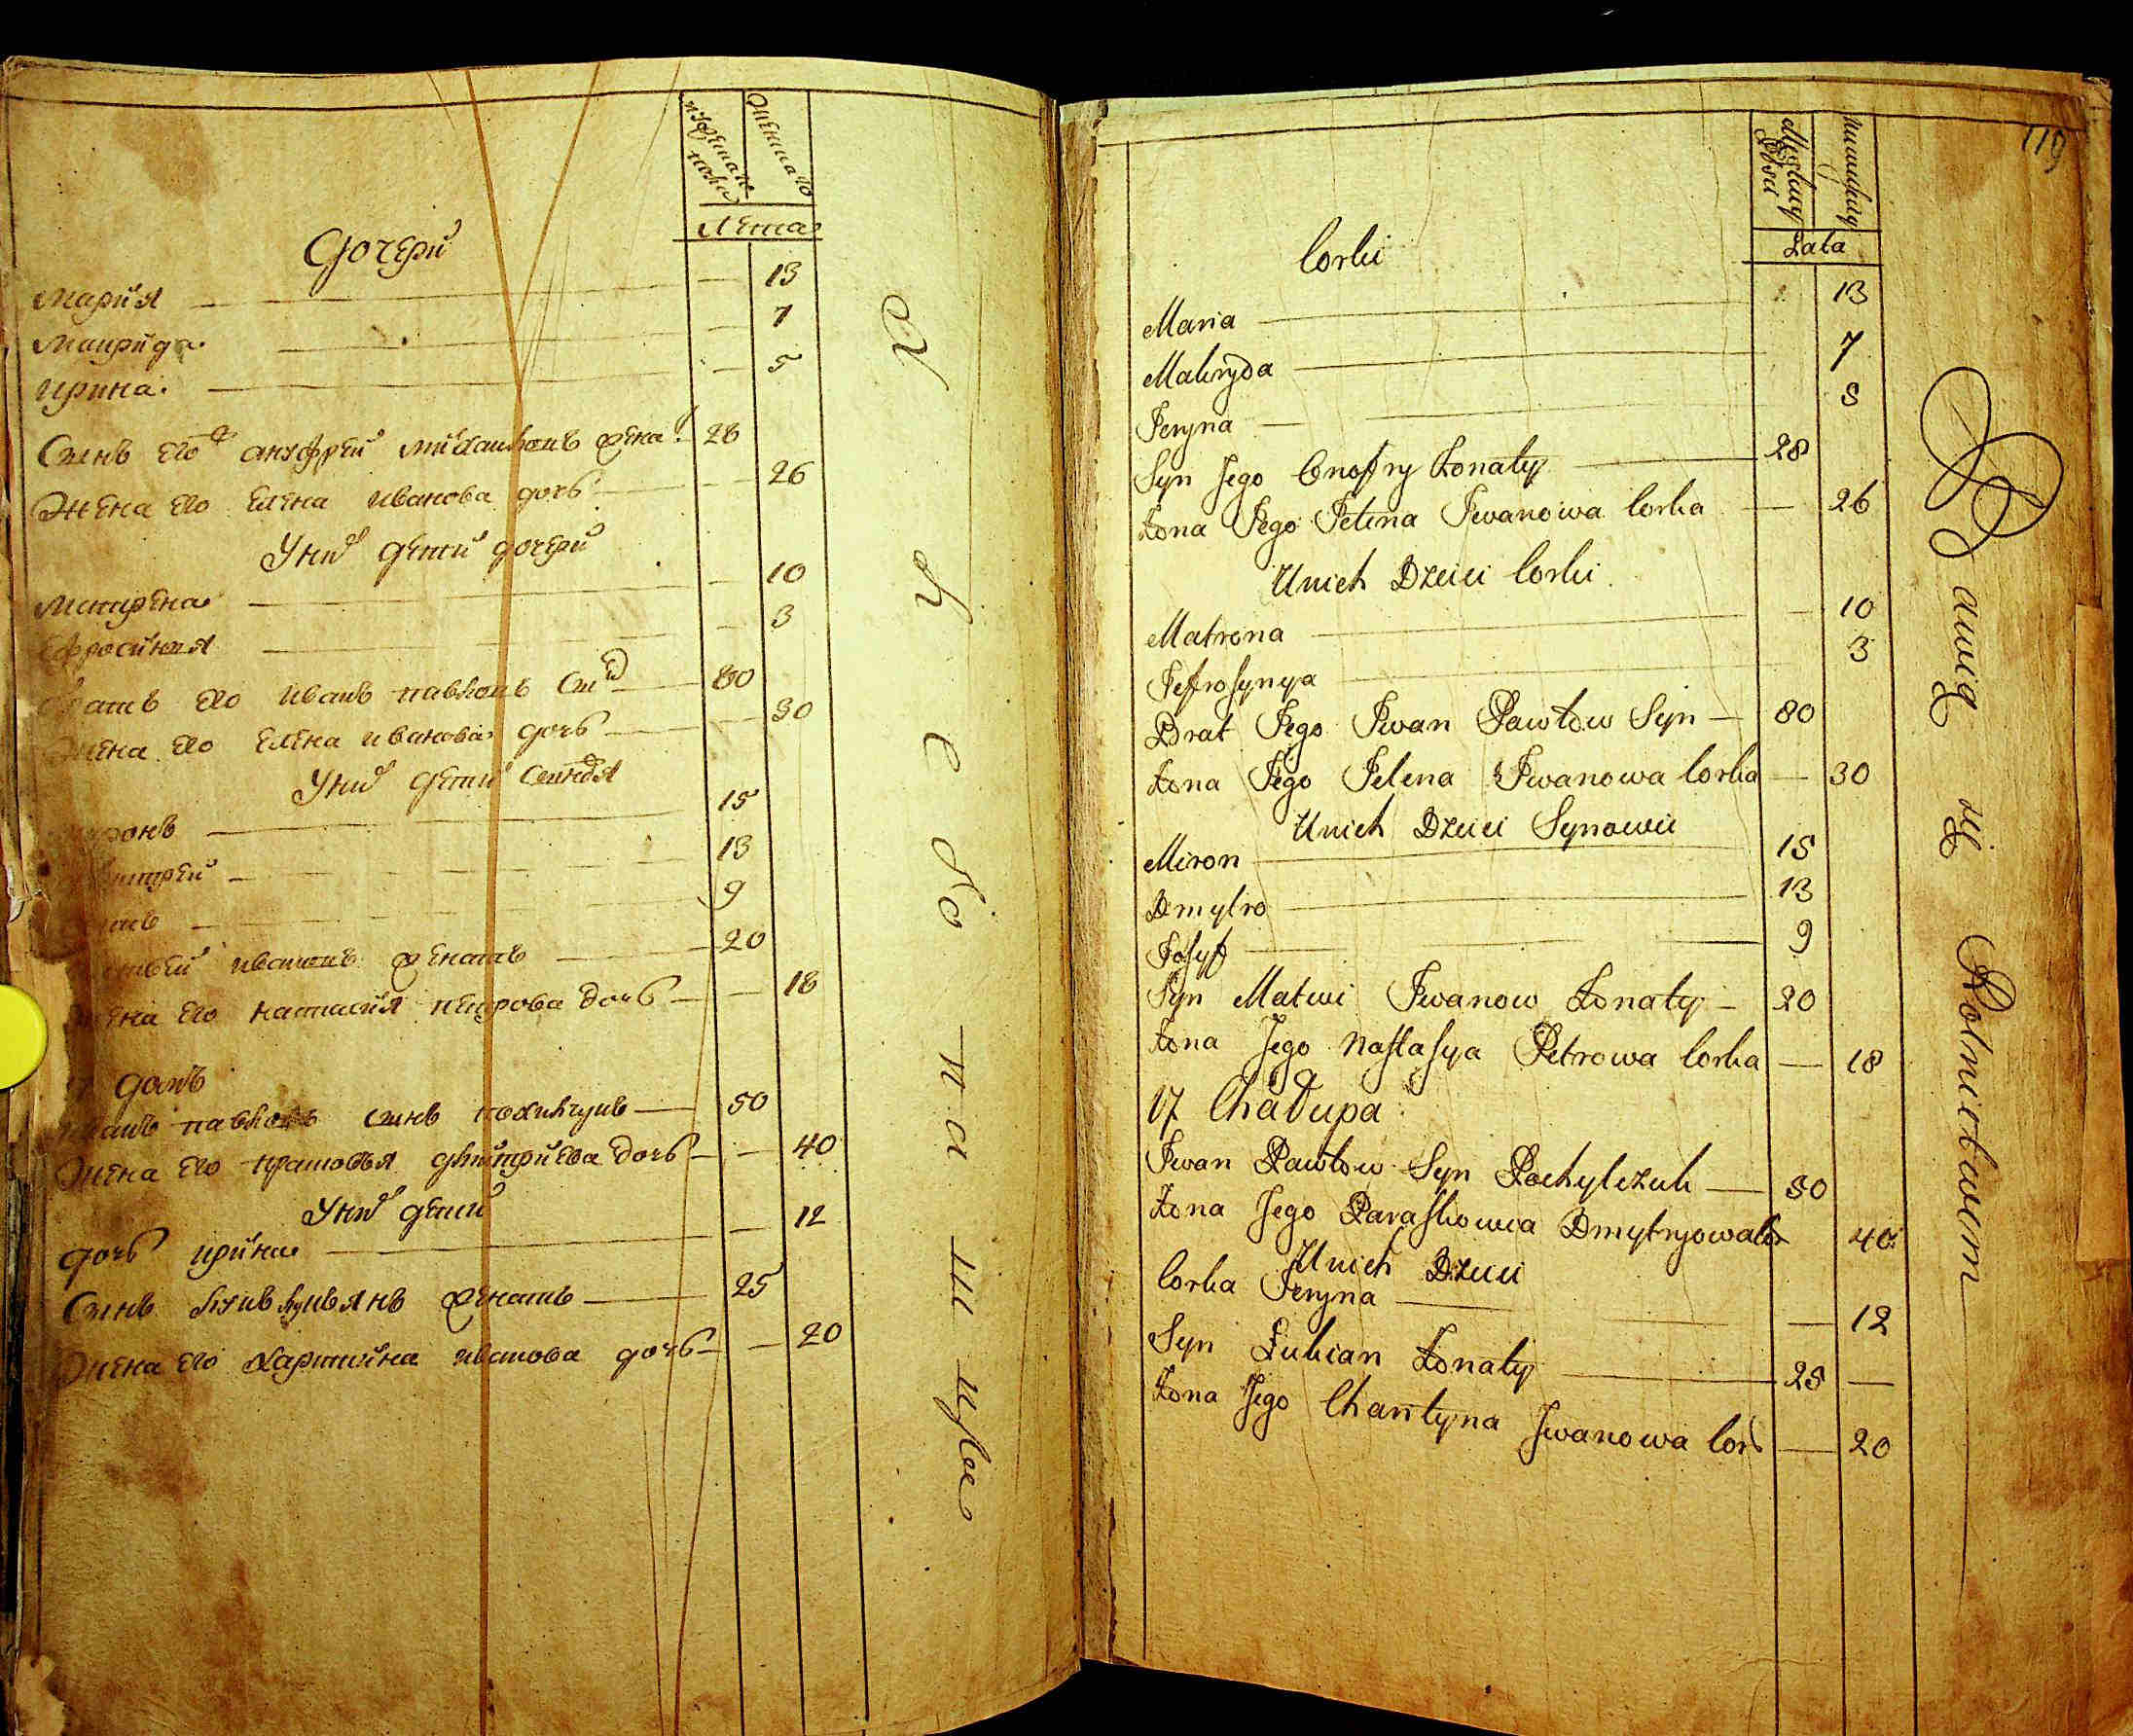 Дочери
Лета
Мария 13
Макрида 7
Ирина 5
Сынъ его Ануфрей Михайловъ жена 28
Жена его Елена Иванова дочь 26
У них дети дочери
Матрена 10
Ефросиния 3
его Иванъ Павловъ Сы 80
Жена его Елена Иванова дочь 30
У них дети
15
13
9
Ивановъ женатъ 20
его Настасия Петрова дочь 18
домъ
Павловъ сынъ 50
Жена его Димитриева дочь 40
У них дети
дочь Ирина 12
Сынъ женатъ 25
Жена его Харитина Иванова дочь 20
119
Lata
Corki
Maria 13
Makryda 7
Jeryna 5
Syn Jego Onofry Żonaty 28
Żona Jego Jelena Jwanowa Corka 26
U nich Dzieci Corki
Matrona 10
Jefrosynya 3
Brat Jego Jwan Pawłow Syn 80
Żona Jego Jelena Jwanowa Corka 30
U nich Dzieci Synowie
Miron 15
Dmytro 13
Josyf 9
Syn Matwi Jwanow Żonaty 20
Żona Jego Nastasya Petrowa Corka 18
17 Chałupa
Jwan Pawłow Syn Pochylczuk 50
Żona Jego Paraskowia Dmytryowa Cor 40
U nich Dzieci
Corka Jeryna 12
Syn Łukian Żonaty 25
Żona Jego Charytyna Jwanowa Cor 20
Bawią się Rolnictwem